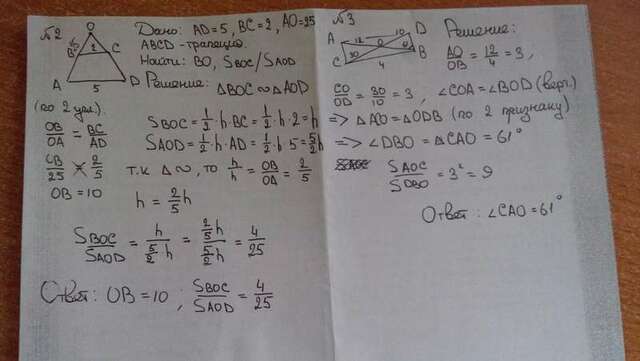 №2
O
B
2
C
A
5
D
Дано: AD=5, BC=2, AO=25
ABCD-трапеция
Найти: BO, SBOC/SAOD
Решение: △BOC∞△AOD
(по 2 угл.)
OB/OA = BC/AD
SBOC = 1/2 h·BC = 1/2 h·2 = h
SAOD = 1/2·h·AD = 1/2·h·5 = 5/2 h
OB/25 2/5
т.к △∞, то h/h = OB/OA = 2/5
OB=10
h = 2/5 h
SBOC/SAOD = h/(5/2 h) = (2/5 h)/(5/2 h) = 4/25
Ответ: OB=10 ; SBOC/SAOD = 4/25
№3
A
12
O
10
D
C
30
4
B
Решение:
AO/OB = 12/4 = 3,
CO/OD = 30/10 = 3, ∠COA=∠BOD (верт.)
=> △ACO=△ODB (по 2 признаку)
=> ∠DBO=△CAO=61°
SAOC/SDBO = 3² = 9
Ответ: ∠CAO=61°